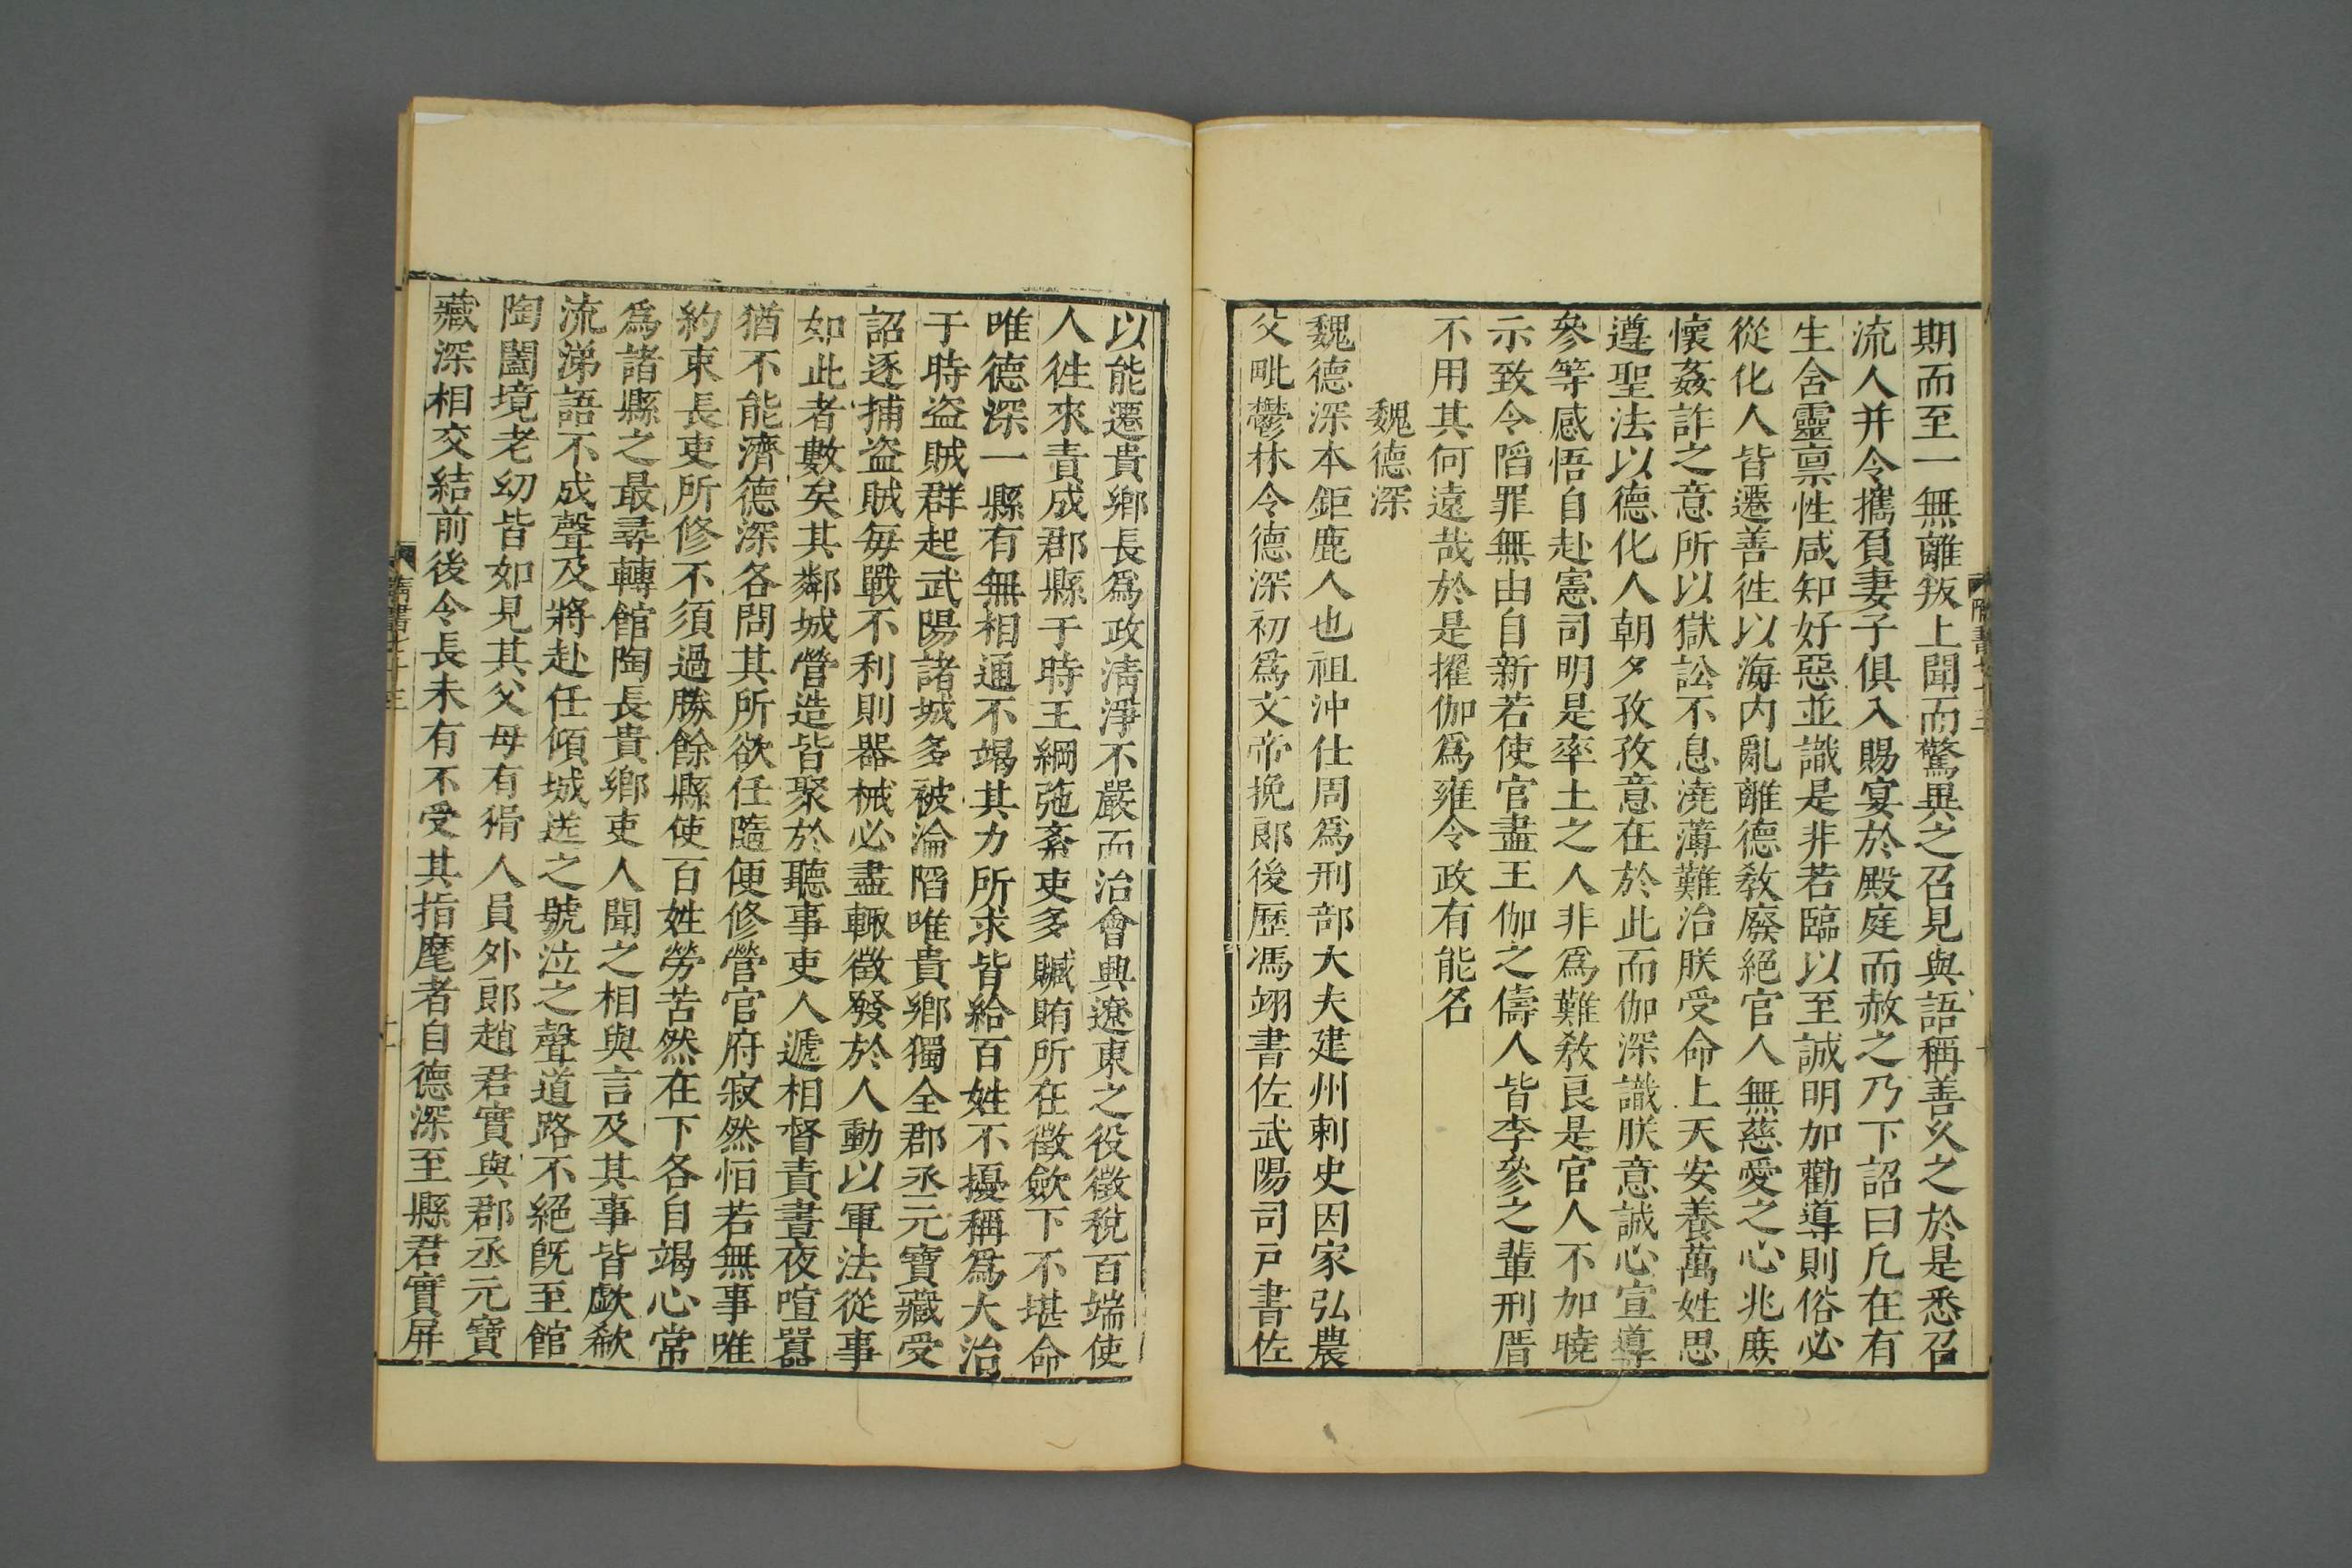 期而至一無離叛上聞而驚異之召見與語稱善久之於是悉召
流人并令攜負妻子俱入賜宴於殿庭而赦之乃下詔曰凡在有
生含靈禀性咸知好惡並識是非若臨以至誠明加勸導則俗必
從化人皆遷善徃以海内亂離德敎廢絕官人無慈愛之心兆庶
懷姦詐之意所以獄訟不息澆薄難治朕受命上天安養萬姓思
遵聖法以德化人朝夕孜孜意在於此而伽深識朕意誠心宣導
參等感悟自赴憲司明是率土之人非爲難敎良是官人不加曉
示致令陷罪無由自新若使官盡王伽之儔人皆李參之輩刑厝
不用其何遠哉於是擢伽爲雍令政有能名
魏德深
魏德深本鉅鹿人也祖沖仕周爲刑部大夫建州刺史因家弘農
父毗鬱林令德深初爲文帝挽郎後歷馮翊書佐武陽司戸書佐
以能遷貴鄉長爲政淸淨不嚴而治會興遼東之役徵稅百端使
人徃來責成郡縣于時王綱弛紊吏多贓賄所在徵歛下不堪命
唯德深一縣有無相通不竭其力所求皆給百姓不擾稱爲大治
于時盗賊群起武陽諸城多被淪陷唯貴鄉獨全郡丞元寶藏受
詔逐捕盗賊每戰不利則器械必盡輙徵發於人動以軍法從事
如此者數矣其鄰城營造皆聚於聽事吏人遞相督責晝夜喧囂
猶不能濟德深各問其所欲任隨便修營官府寂然恒若無事唯
約束長吏所修不須過勝餘縣使百姓勞苦然在下各自竭心常
爲諸縣之最尋轉館陶長貴鄉吏人聞之相與言及其事皆歔欷
流涕語不成聲及將赴任傾城送之號泣之聲道路不絕旣至館
陶闔境老幼皆如見其父母有猾人員外郎趙君實與郡丞元寶
藏深相交結前後令長未有不受其指麾者自德深至縣君實屏